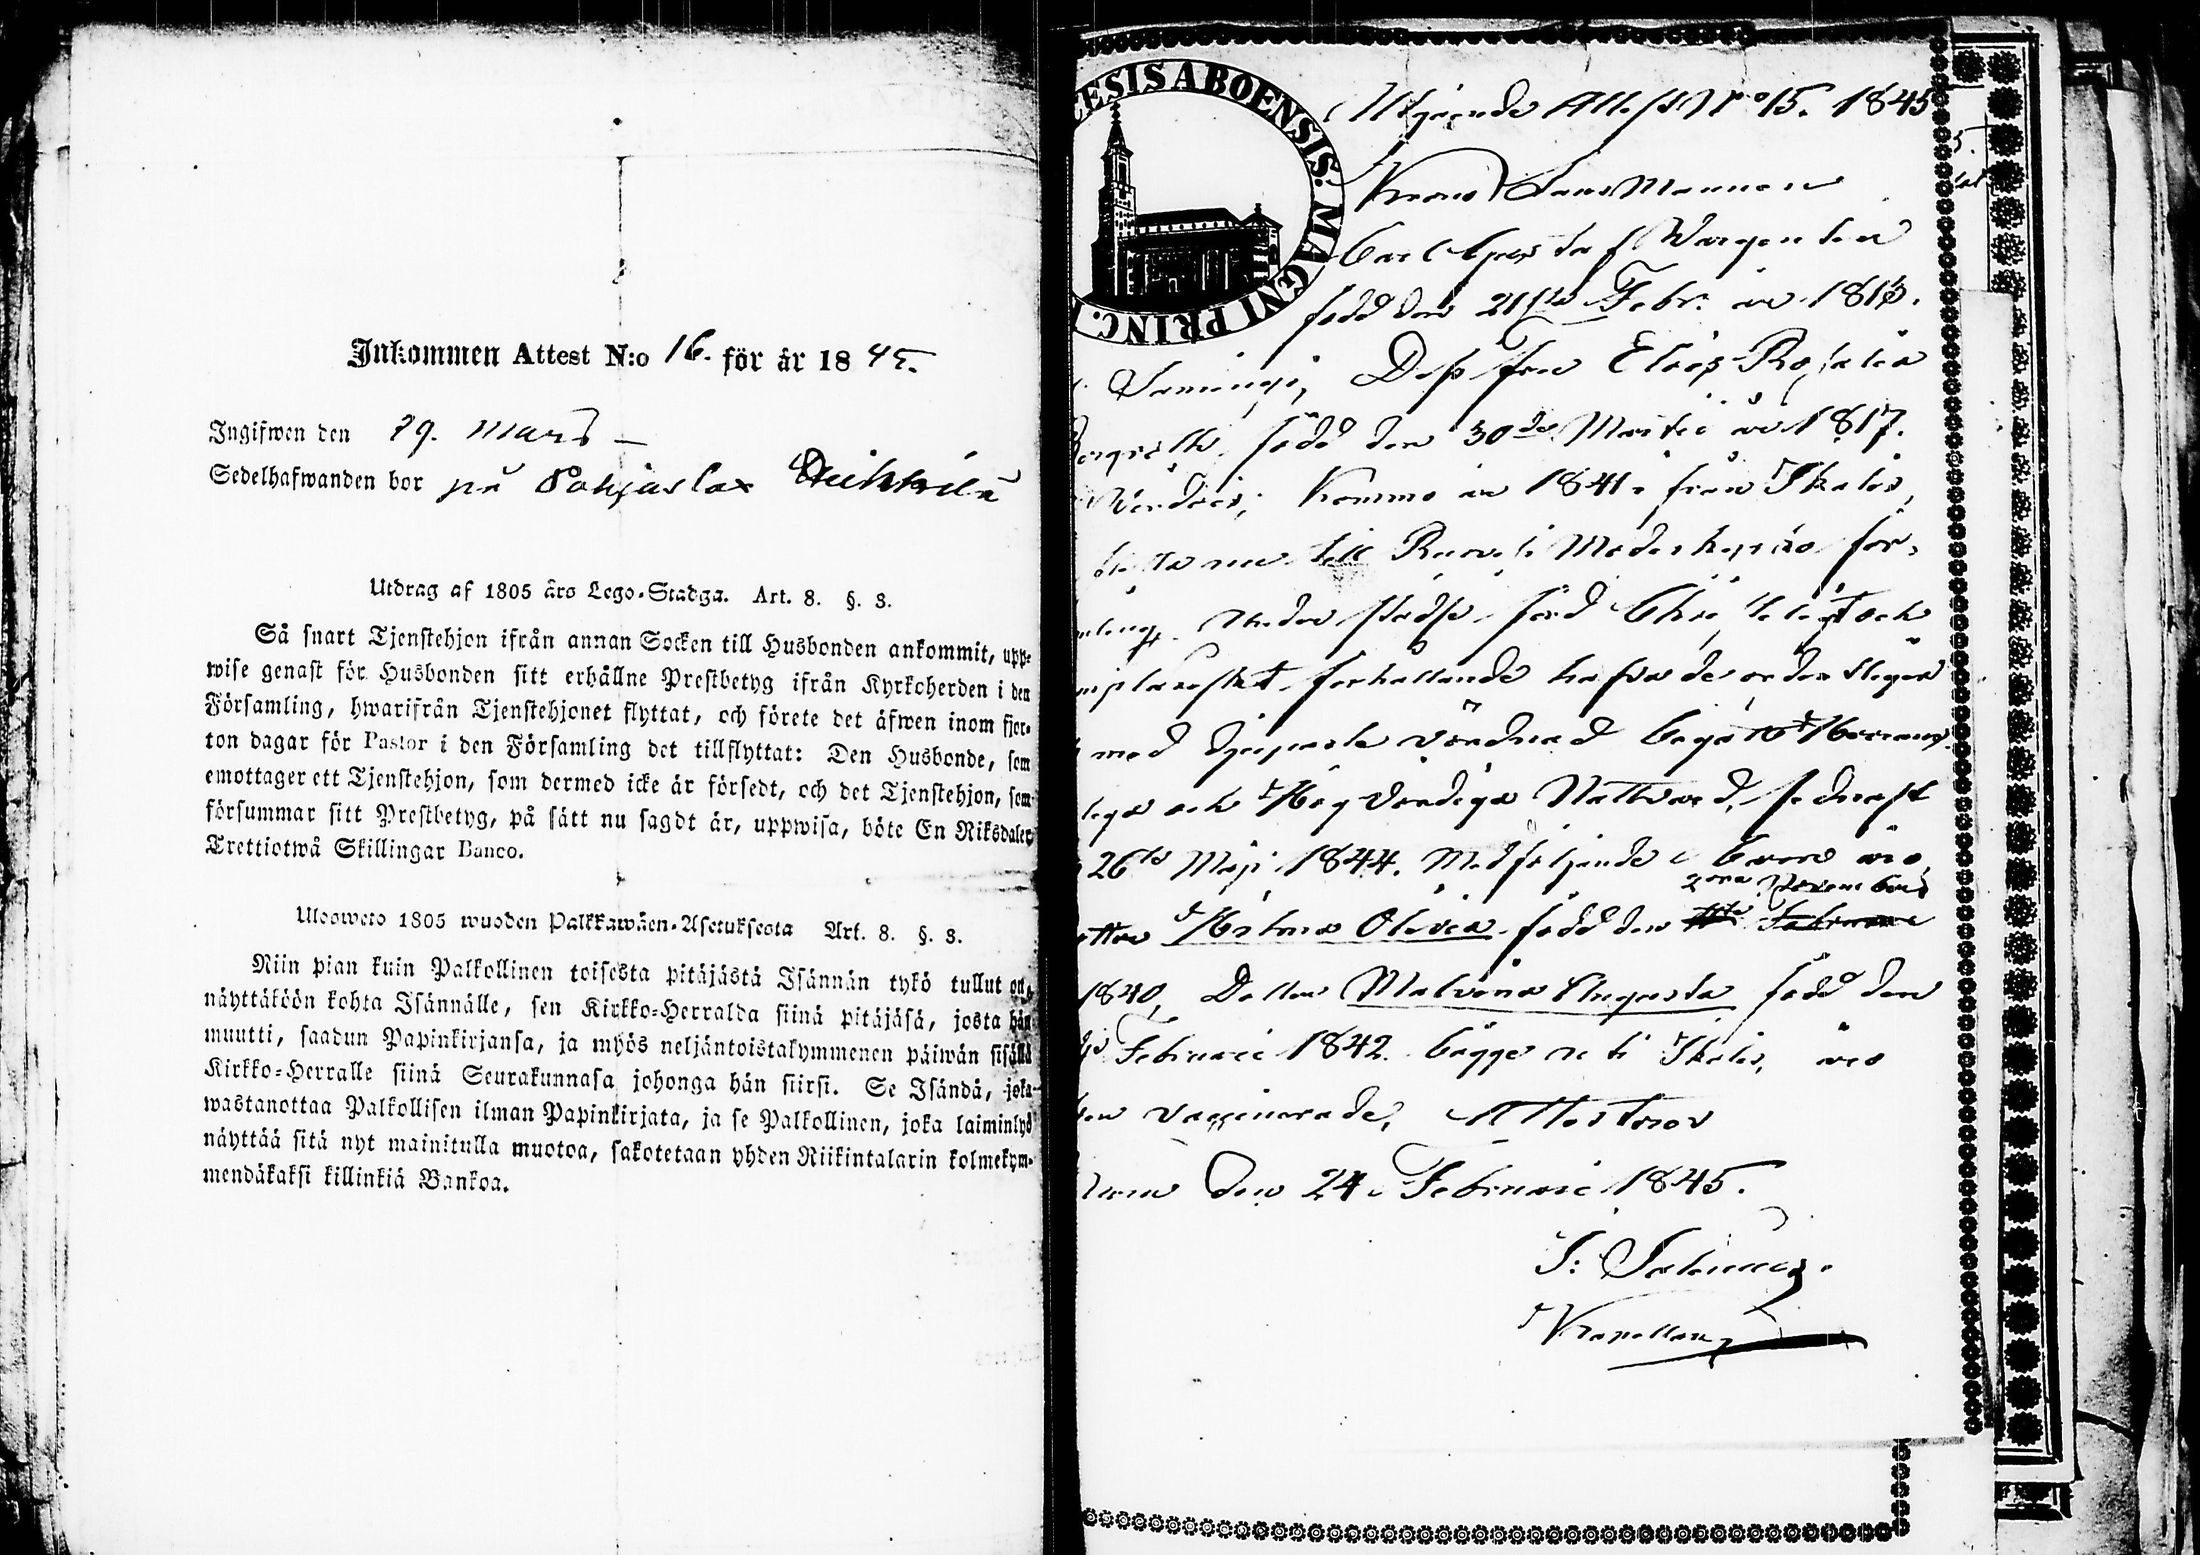 Inkommen Attest N:o 16. för år 1845.
Ingifwen den 29. Mars
Sedelhafwanden bor på Pohjaslax
Utdrag af 1805 års Lego-Stadga. Art. 8. §. 3.
Så snart Tjenstehjon ifrån annan Socken till Husbonden ankommit, upp-
wise genast för Husbonden sitt erhållne Prestbetyg ifrån Kyrkoherden i den
Församling, hwarifrån Tjenstehjonet flyttat, och förete det äfwen inom fjor-
ton dagar för Pastor i den Församling det tillflyttat: Den Husbonde, som
emottager ett Tjenstehjon, som dermed icke är försedt, och det Tjenstehjon, som
försummar sitt Prestbetyg, på sätt nu sagdt är, uppwisa, böte En Riksdaler
Trettiotwå Skillingar Banco.
Ulosweto 1805 wuoden Palkkawäen-Asetuksesta Art. 8. §. 3.
Niin pian kuin Palkollinen toisesta pitäjästä Isännän tykö tullut on,
näyttäköön kohta Isännälle, sen Kirkko-Herralda siinä pitäjäsä, josta hän
muutti, saadun Papinkirjansa, ja myös neljäntoistakymmenen päiwän sisällä
Kirkko-Herralle siinä Seurakunnasa johonga hän siirsi. Se Isändä, joka
wastanottaa Palkollisen ilman Papinkirjata, ja se Palkollinen, joka laiminlyö
näyttää sitä nyt mainitulla muotoa, sakotetaan yhden Riikintalarin kolmekym-
mendäkaksi killinkiä Bankoa.
ESIS ABOENSIS. MAGNI PRINC.
Utgående Attest N:o 15. 1845
Krono Länsmannen
Carl Gustaf Wargentin
född den 21sta Febr. år 181
Dess Fru Elise Rosalia
född den 30de Martii år 1817.
Komne år 1841 från Ikalis,
till Ruovesi Moderkyrko för-
stådse förd Christeligt och
förhållande hafva de ordenteligen
med djupaste vördnad begått
och Högvärdiga Nattvard, sednast
26te Maji 1844. Medföljande Barn äro,
2dra November
Hilma Olivia född den
1840, Dotter Malvina Augusta född den
Februarii 1842. bägge uti Ikalis, äro
vaccinerade, Attesterar
den 24 Februarii 1845.
Kapellan